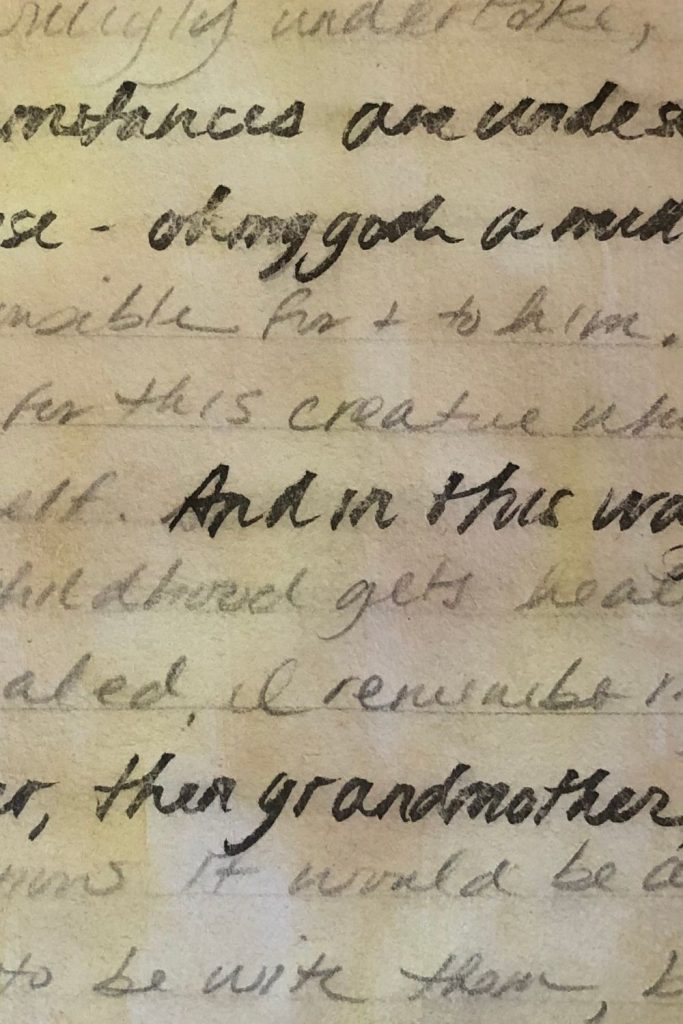 willingly undertake,
mstances are undes
se - oh my god a mill
onsible for + to him.
for this creative wh
elf. And in this wa
childhood gets heal
aled, I remember
er, then grandmother,
it would be a
to be with them, b